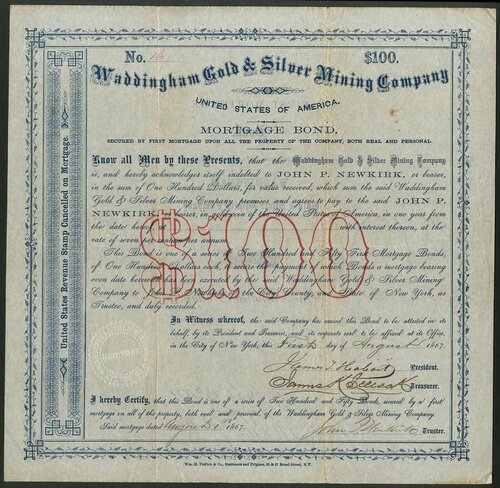 No. 16
$100.
Waddingham Gold & Silver Mining Company
UNITED STATES OF AMERICA.
MORTGAGE BOND,
SECURED BY FIRST MORTGAGE UPON ALL THE PROPERTY OF THE COMPANY, BOTH REAL AND PERSONAL
Know all Men by these Presents, that the Waddingham Gold & Silver Mining Company
is, and hereby acknowledges itself indebted to JOHN P. NEWKIRK, or bearer,
in the sum of One Hundred Dollars, for value received, which sum the said Waddingham
Gold & Silver Mining Company promises and agrees to pay to the said JOHN P.
NEWKIRK, or bearer, in gold coin of the United States of America, in one year from
the date hereof, at with interest thereon, at the
rate of seven per centum per annum.
This Bond is one of a series of Two Hundred and Fifty First Mortgage Bonds,
of One Hundred Dollars each, for the payment of which Bonds a mortgage bearing
even date herewith, executed by the said Waddingham Gold & Silver Mining
Company to of the City, County, and State of New York, as
Trustee, and duly recorded.
$100
In Witness whereof, the said Company has caused this Bond to be attested in its
behalf, by its President and Treasurer, and its corporate seal to be affixed at its Office,
in the City of New York, this First day of August 1867.
President.
Treasurer.
I hereby Certify, that this Bond is one of a series of Two Hundred and Fifty Bonds, secured by a first
mortgage on all of the property, both real and personal, of the Waddingham Gold & Silver Mining Company.
Said mortgage dated August 1st 1867.
Trustee.
United States Revenue Stamp Cancelled on Mortgage.
Wm. H. Trafton & Co., Stationers and Printers, 49 & 87 Broad Street, N.Y.